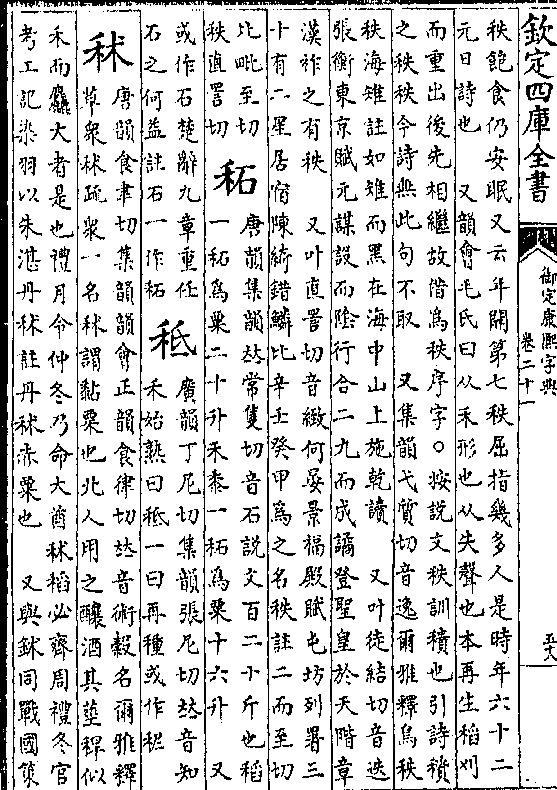 欽定四庫全書
御定康熙字典
卷二十一
五十八
秩飽食仍安眠又云年開第七秩屈指幾多人是時年六十二
元日詩也 又韻會毛氏曰从禾形也从失聲也本再生稻刈
而重出後先相繼故借為秩序字○按説文秩訓積也引詩積
之秩秩今詩無此句不取 又集韻弋質切音逸爾雅釋鳥秩
秩海雉註如雉而黑在海中山上施乾讀 又叶徒結切音迭
張衡東京賦元謀設而陰行合二九而成譎登聖皇於天階章
漢祚之有秩 又叶直詈切音緻何晏景福殿賦屯坊列署三
十有二星居宿陳綺錯鱗比辛壬癸甲為之名秩註二而至切
比毗至切
秩直詈切 䄷 唐韻集韻𠀤常隻切音石説文百二十斤也稻
一䄷為粟二十升禾黍一䄷為粟十六升 又
或作石楚辭九章重任
石之何益註石一作䄷 秪 廣韻丁尼切集韻張尼切𠀤音知
禾始熟曰秪一曰再種或作秖
秫 唐韻食聿切集韻韻會正韻食律切𠀤音術穀名爾雅釋
草衆秫疏衆一名秫謂黏粟也北人用之釀酒其莖稈似
禾而麤大者是也禮月令仲冬乃命大酋秫稻必齊周禮冬官
考工記染羽以朱湛丹秫註丹秫赤粟也 又與鉥同戰國策